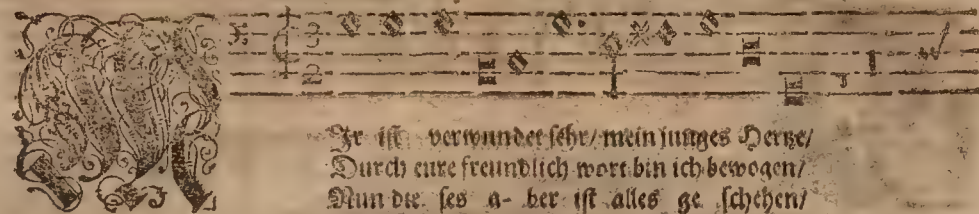 Jr ist verwundet sehr/ mein junges Hertze/
Durch eure freundlich wort bin ich bewogen/
Nun die ses a- ber ist alles ge schehen/